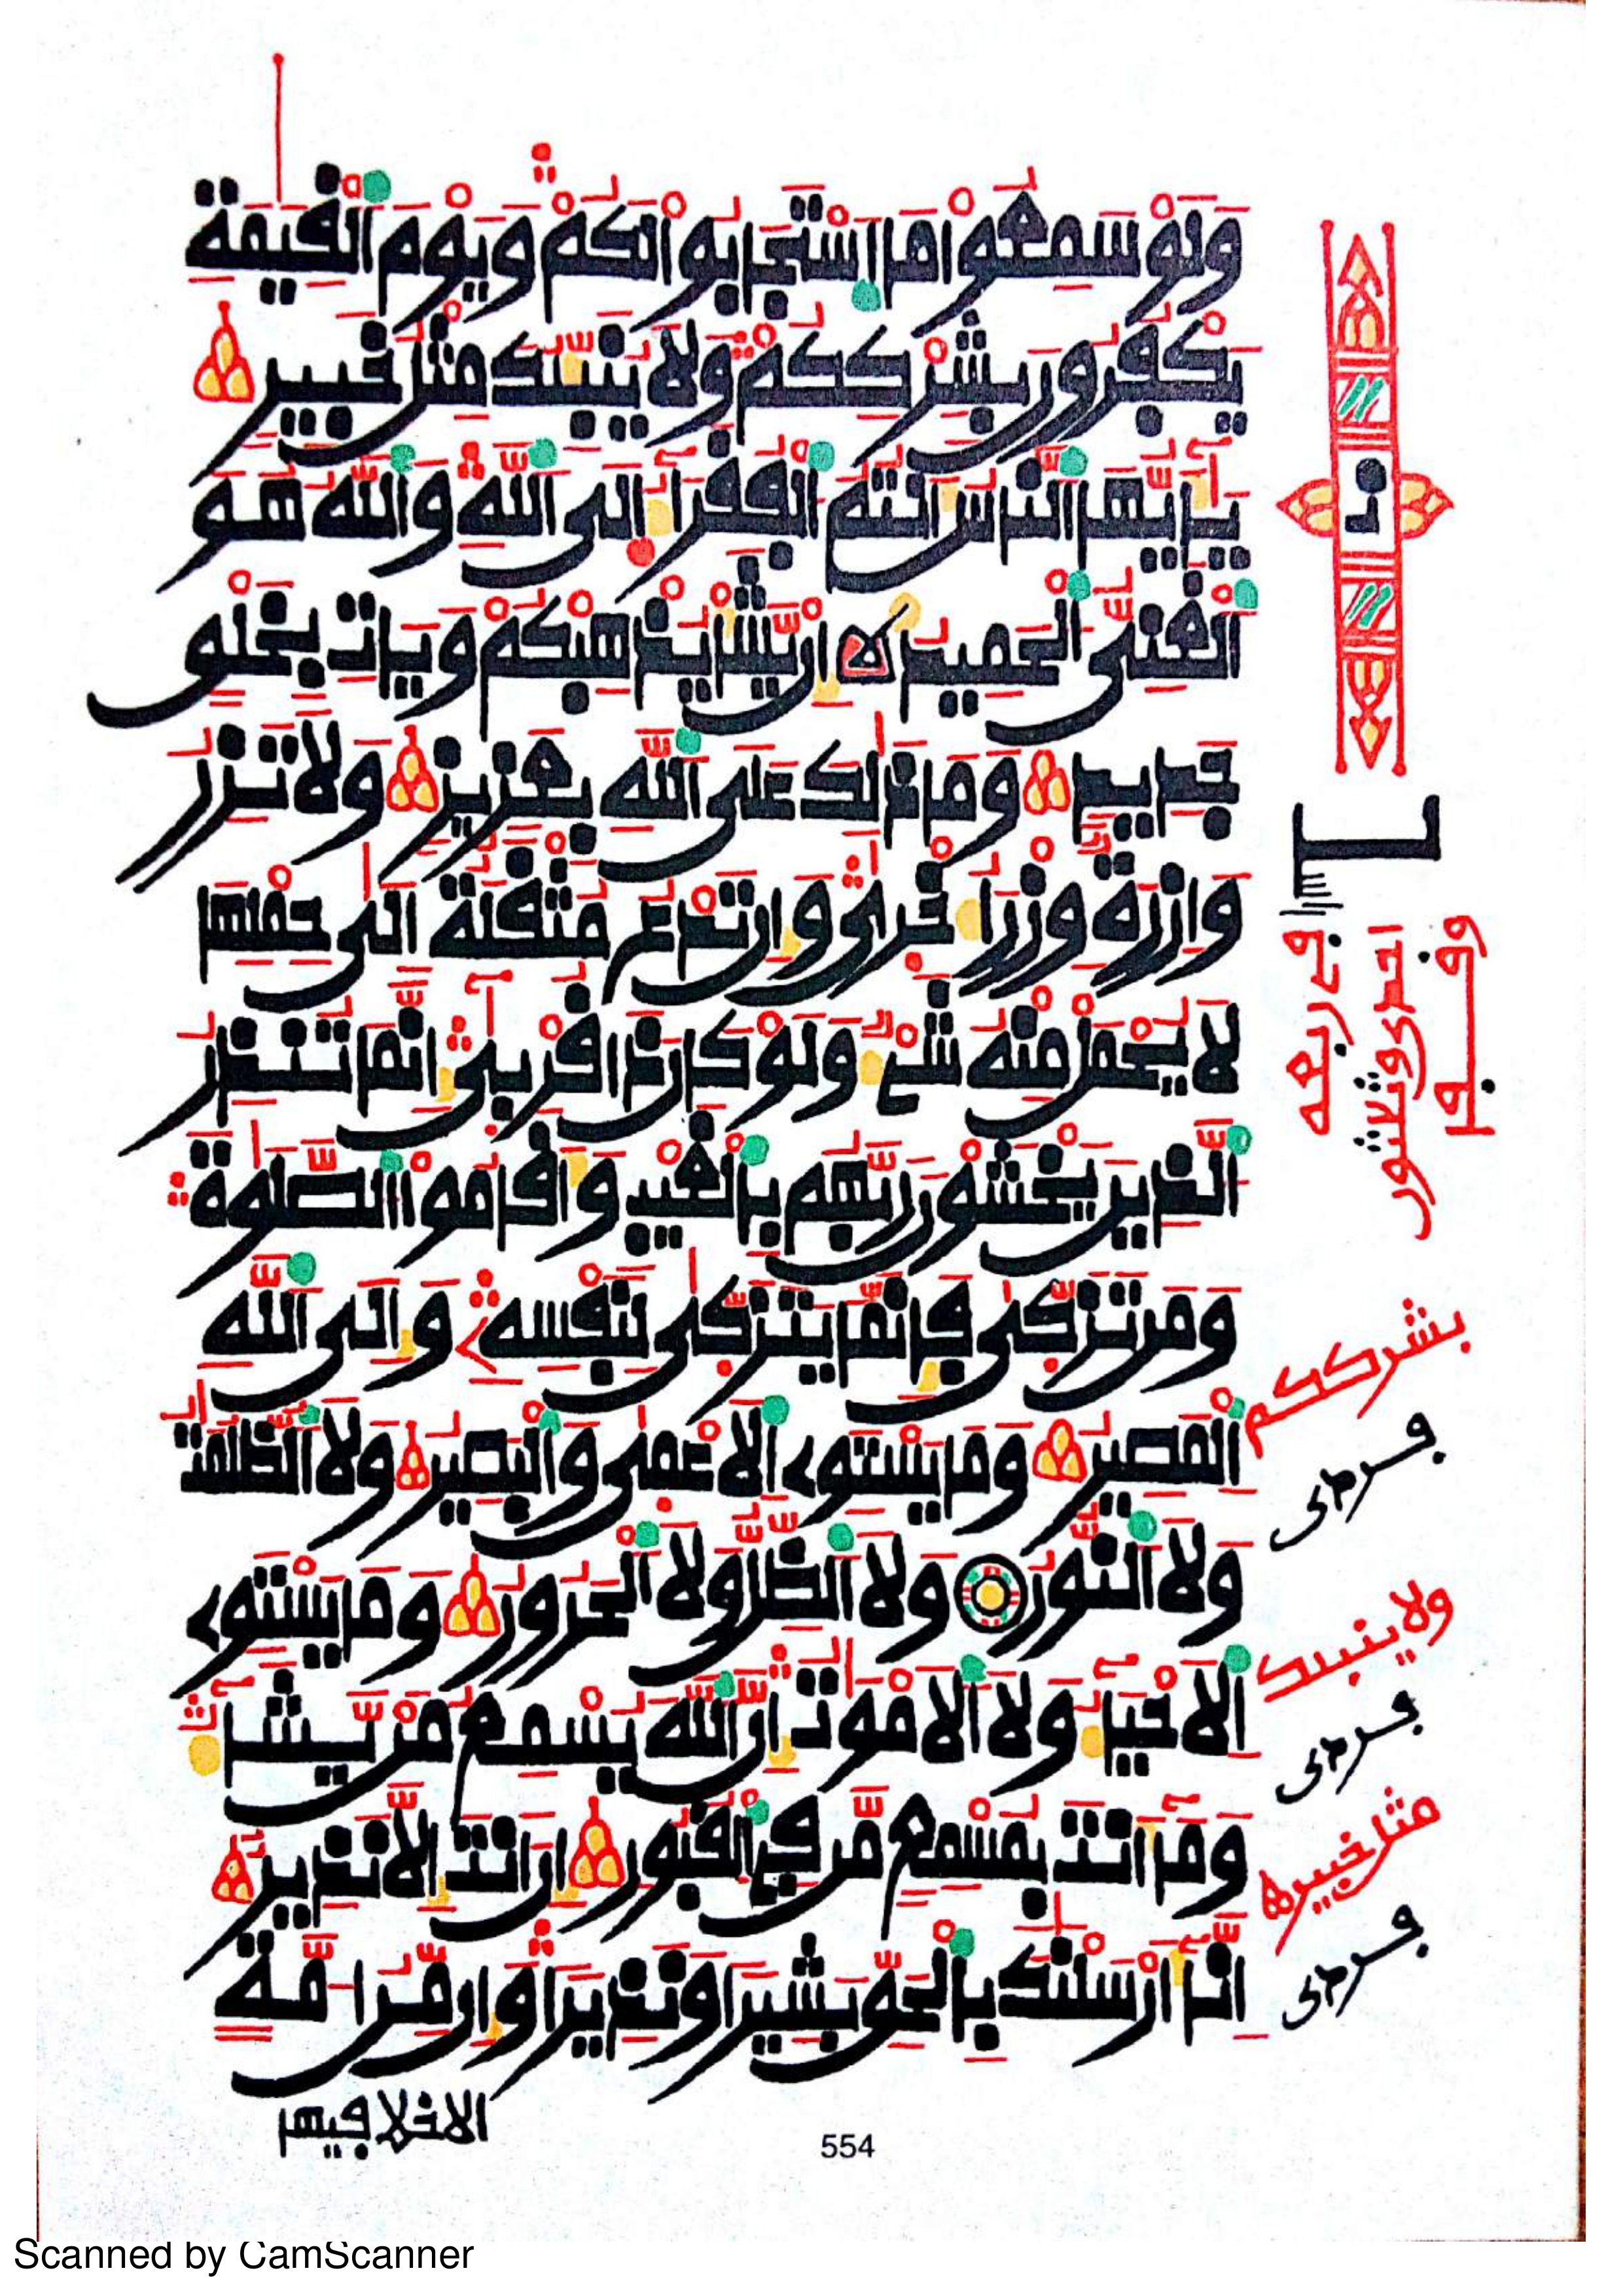 ولو سمعوا ما استجابوا لكم ويوم القيمة
يكفرون بشرككم ولا ينبئك مثل خبير
يأيها الناس أنتم الفقراء إلى الله والله هو
الغني الحميد إن يشأ يذهبكم ويات بخلو
جديد وما ذلك على الله بعزيز ولا تزر
وازرة وزر أخرى وإن تدع مثقلة إلى حملها
لا يحمل منه شيء ولو كان ذا قربى إنما تنذر
الذين يخشون ربهم بالغيب وأقاموا الصلوة
ومن تزكى فإنما يتزكى لنفسه وإلى الله
المصير وما يستوي الأعمى والبصير ولا الظلمت
ولا النور ولا الظل ولا الحرور وما يستوي
الأحياء ولا الأموت إن الله يسمع من يشاء
وما أنت بمسمع من في القبور إن أنت إلا نذير
إنا أرسلنك بالحق بشيرا ونذيرا وإن من امة
الا خلا فيها
بشرككم
ولا ينبئك
مثل خبير
554
Scanned by CamScanner